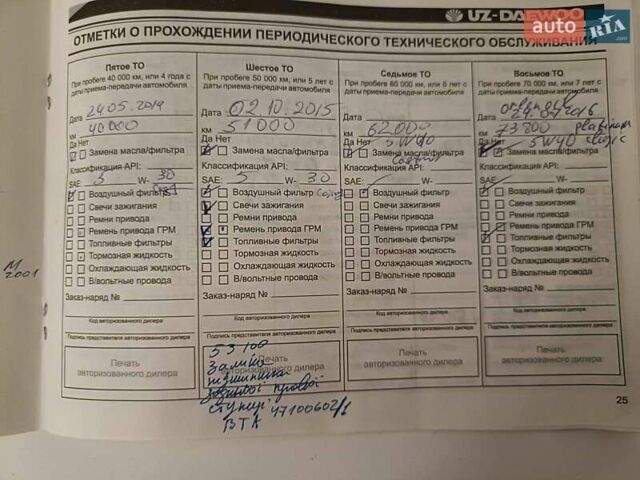 UZ-DAEWOO
auto RIA.com
ОТМЕТКИ О ПРОХОЖДЕНИИ ПЕРИОДИЧЕСКОГО ТЕХНИЧЕСКОГО ОБСЛУЖИВАНИЯ
Пятое ТО
При пробеге 40 000 км, или 4 года с
даты приема-передачи автомобиля
Дата 24.05.2014
км 40000
Да Нет
Замена масла/фильтра
Классификация API:
SAE: 5 W- 30
Воздушный фильтр
Свечи зажигания
Ремни привода
Ремень привода ГРМ
Топливные фильтры
Тормозная жидкость
Охлаждающая жидкость
В/вольтные провода
Заказ-наряд №
Код авторизованного дилера
Подпись представителя авторизованного дилера
Печать
авторизованного дилера
Шестое ТО
При пробеге 50 000 км, или 5 лет с
даты приема-передачи автомобиля
Дата 02.10.2015
км 51000
Да Нет
Замена масла/фильтра
Классификация API:
SAE: 5 W- 30
Воздушный фильтр
Свечи зажигания
Ремни привода
Ремень привода ГРМ
Топливные фильтры
Тормозная жидкость
Охлаждающая жидкость
В/вольтные провода
Заказ-наряд №
Код авторизованного дилера
Подпись представителя авторизованного дилера
Печать
авторизованного дилера
53100
ступиці 47100602/1
ВТА
Седьмое ТО
При пробеге 60 000 км, или 6 лет с
даты приема-передачи автомобиля
Дата
км 62000
Да Нет 5W40
Замена масла/фильтра
Классификация API:
SAE: W-
Воздушный фильтр
Свечи зажигания
Ремни привода
Ремень привода ГРМ
Топливные фильтры
Тормозная жидкость
Охлаждающая жидкость
В/вольтные провода
Заказ-наряд №
Код авторизованного дилера
Подпись представителя авторизованного дилера
Печать
авторизованного дилера
Восьмое ТО
При пробеге 70 000 км, или 7 лет с
даты приема-передачи автомобиля
Дата
км 73800 platinum
Да Нет 5W40 classic
Замена масла/фильтра
Классификация API:
SAE: W-
Воздушный фильтр
Свечи зажигания
Ремни привода
Ремень привода ГРМ
Топливные фильтры
Тормозная жидкость
Охлаждающая жидкость
В/вольтные провода
Заказ-наряд №
Код авторизованного дилера
Подпись представителя авторизованного дилера
Печать
авторизованного дилера
М
2001
25